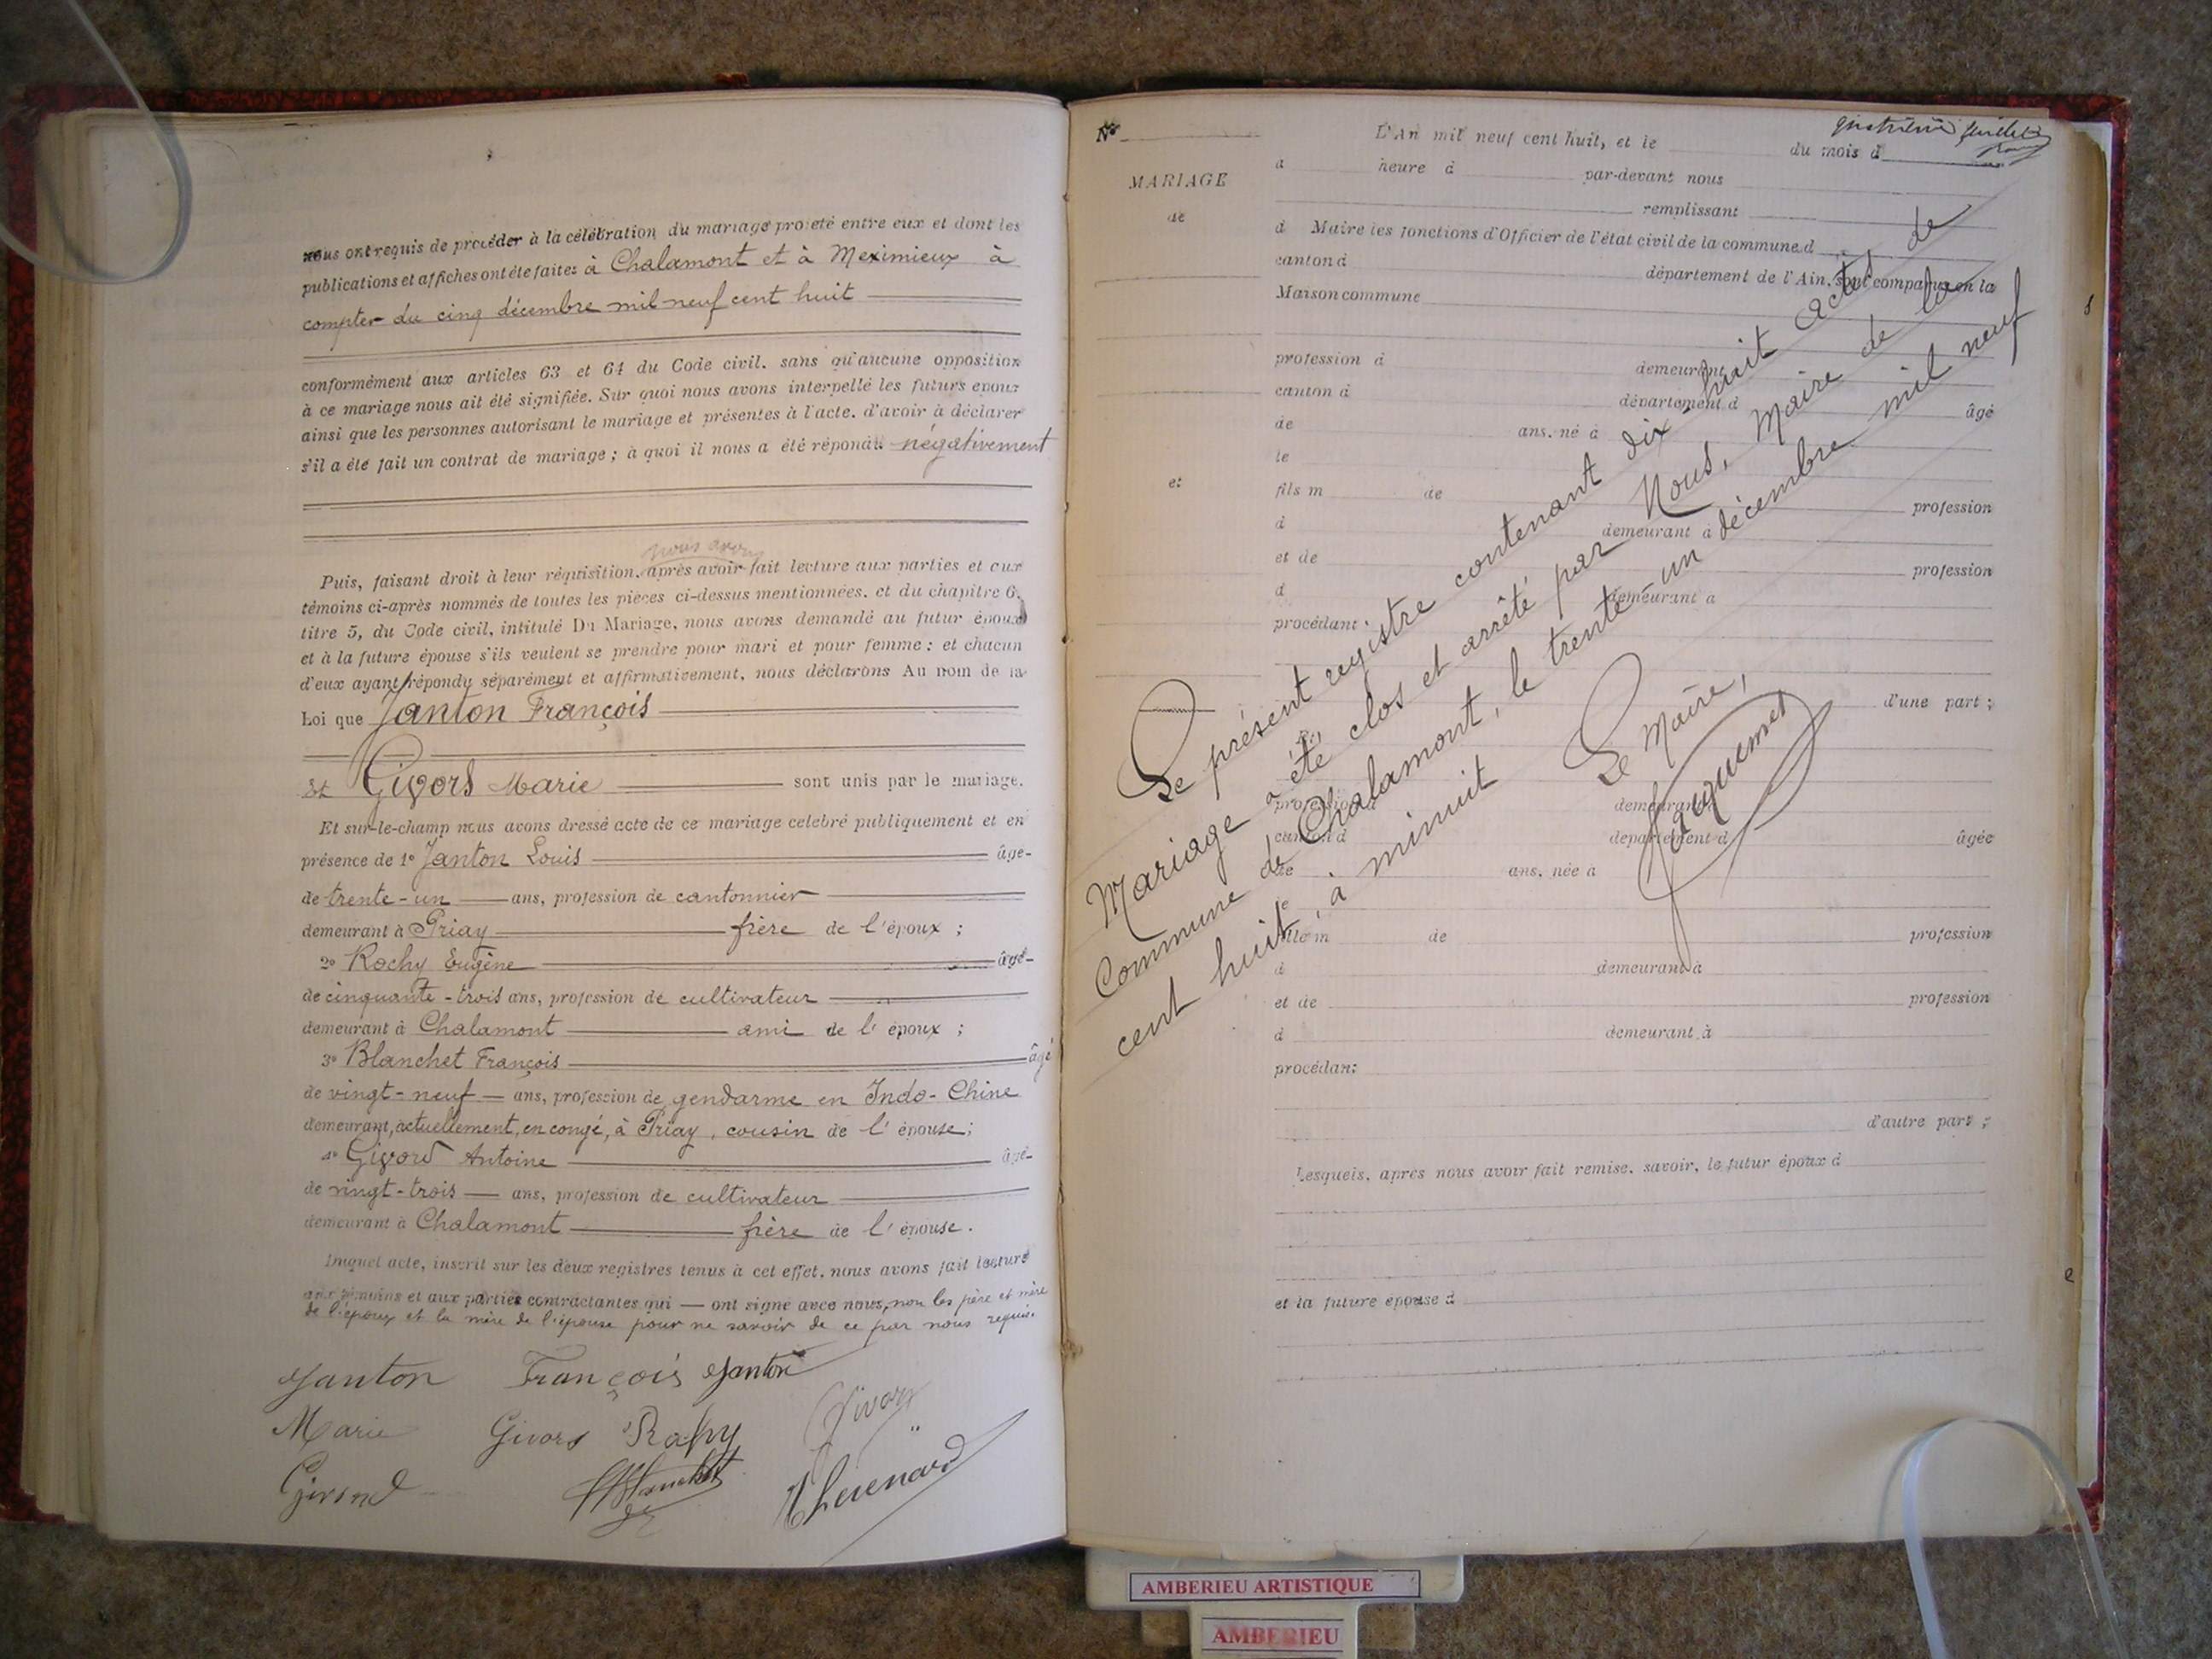 nous ont requis de procéder à la célébration du mariage projeté entre eux et dont les
publications et affiches ont été faites à Chalamont et à Meximieux à
compter du cinq décembre mil neuf cent huit
conformément aux articles 63 et 64 du Code civil, sans qu'aucune opposition
à ce mariage nous ait été signifiée. Sur quoi nous avons interpellé les futurs époux
ainsi que les personnes autorisant le mariage et présentes à l'acte, d'avoir à déclarer
s'il a été fait un contrat de mariage ; à quoi il nous a été répondu négativement
nous avons
Puis, faisant droit à leur réquisition, après avoir fait lecture aux parties et aux
témoins ci-après nommés de toutes les pièces ci-dessus mentionnées, et du chapitre 6,
titre 5, du Code civil, intitulé Du Mariage, nous avons demandé au futur époux
et à la future épouse s'ils veulent se prendre pour mari et pour femme ; et chacun
d'eux ayant répondu séparément et affirmativement, nous déclarons Au nom de la
Loi que Janton François
Et Givors Marie sont unis par le mariage.
Et sur-le-champ nous avons dressé acte de ce mariage célébré publiquement et en
présence de 1° Janton Louis âgé
de trente-un ans, profession de cantonnier
demeurant à Priay frère de l'époux ;
2° Rochy Eugène âgé
de cinquante-trois ans, profession de cultivateur
demeurant à Chalamont ami de l'époux ;
3° Blanchet François âgé
de vingt-neuf ans, profession de gendarme en Indo-Chine
demeurant, actuellement, en congé, à Priay, cousin de l'épouse ;
4° Givord Antoine âgé
de vingt-trois ans, profession de cultivateur
demeurant à Chalamont frère de l'épouse.
Duquel acte, inscrit sur les deux registres tenus à cet effet, nous avons fait lecture
aux témoins et aux parties contractantes qui ont signé avec nous, non les père et mère
de l'époux et la mère de l'épouse pour ne savoir de ce par nous requis.
Janton François Janton
Marie Givors Rochy Givors
Givord Blanchet
N°
MARIAGE
de
et
L'An mil neuf cent huit, et le du mois d
à heure d par-devant nous
remplissant
d Maire les fonctions d'Officier de l'état civil de la commune d
canton d département de l'Ain, sont comparus en la
Maison commune
profession d demeurant
canton d département d âgé
de ans, né à
le
fils m de profession
d demeurant à
et de profession
d demeurant à
procédant
d'une part ;
profession d demeurant
canton d département d âgée
de ans, née à
le
fille m de profession
d demeurant à
et de profession
d demeurant à
procédant
d'autre part ;
Lesquels, après nous avoir fait remise, savoir, le futur époux d
et la future épouse d
Le présent registre contenant dix-huit actes de
Mariage a été clos et arrêté par Nous, Maire de la
Commune de Chalamont, le trente-un décembre mil neuf
cent huit, à minuit
Le Maire,
AMBERIEU ARTISTIQUE
AMBERIEU